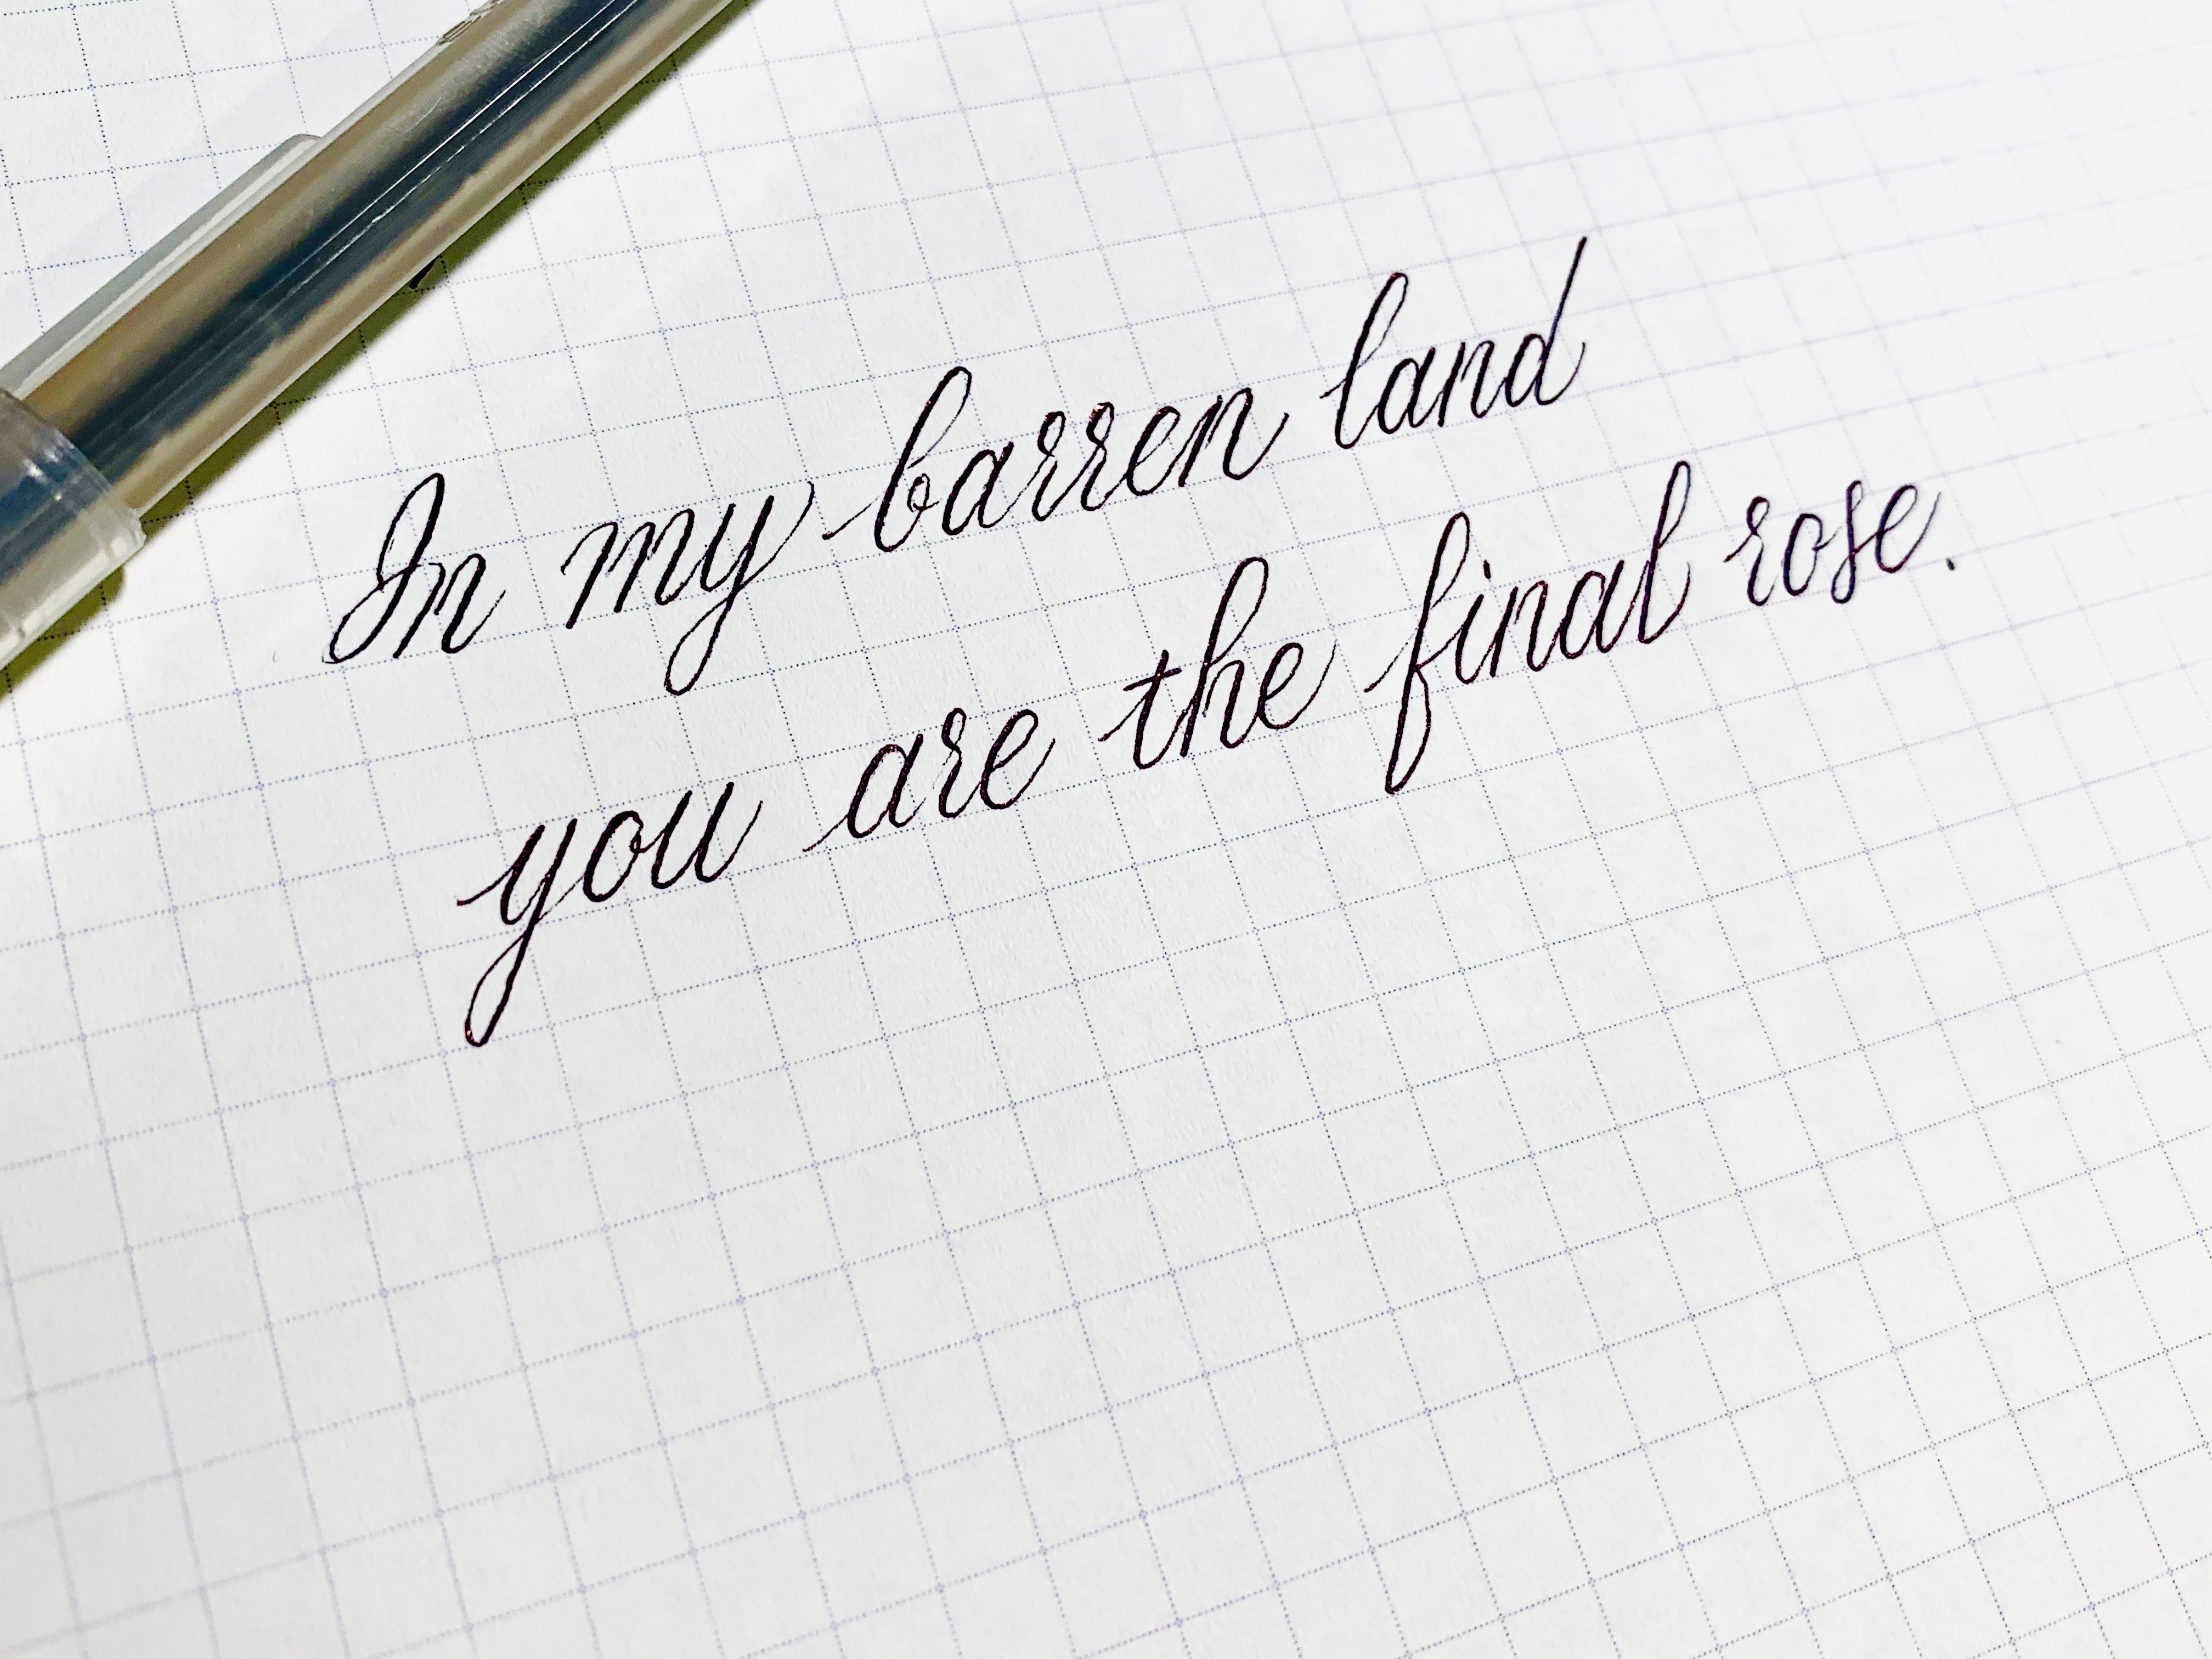 In my barren land
you are the final rose.